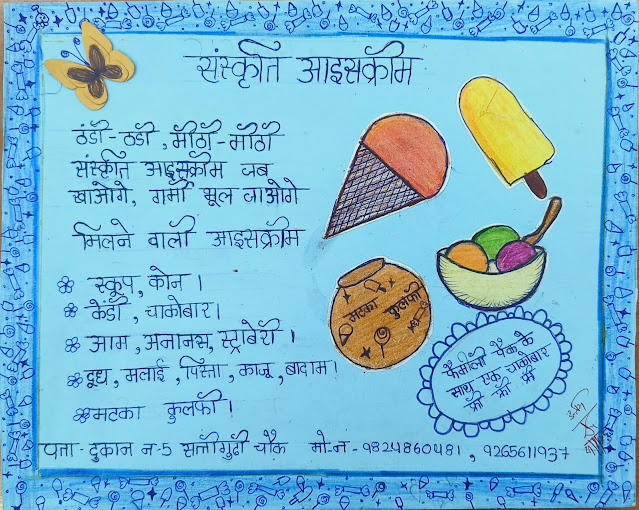 संस्कृति आइसक्रीम
ठंडी-ठंडी, मीठी-मीठी
संस्कृति आइसक्रीम जब
खाओगे, गर्मी भूल जाओगे
मिलने वाली आइसक्रीम
स्कूप, कोन।
केंडी, चाकोबार।
आम, अनानस, स्ट्रोबेरी।
दूध, मलाई, पिस्ता, काजू, बादाम।
मटका कुलफी।
मटका कुलफी
फैमीली पैक के
साथ एक चाकोबार
फ्री फ्री फ्री
पत्ता - दुकान न-5 सत्तीगुडी चौक मो-न - 9824860481, 9265611937